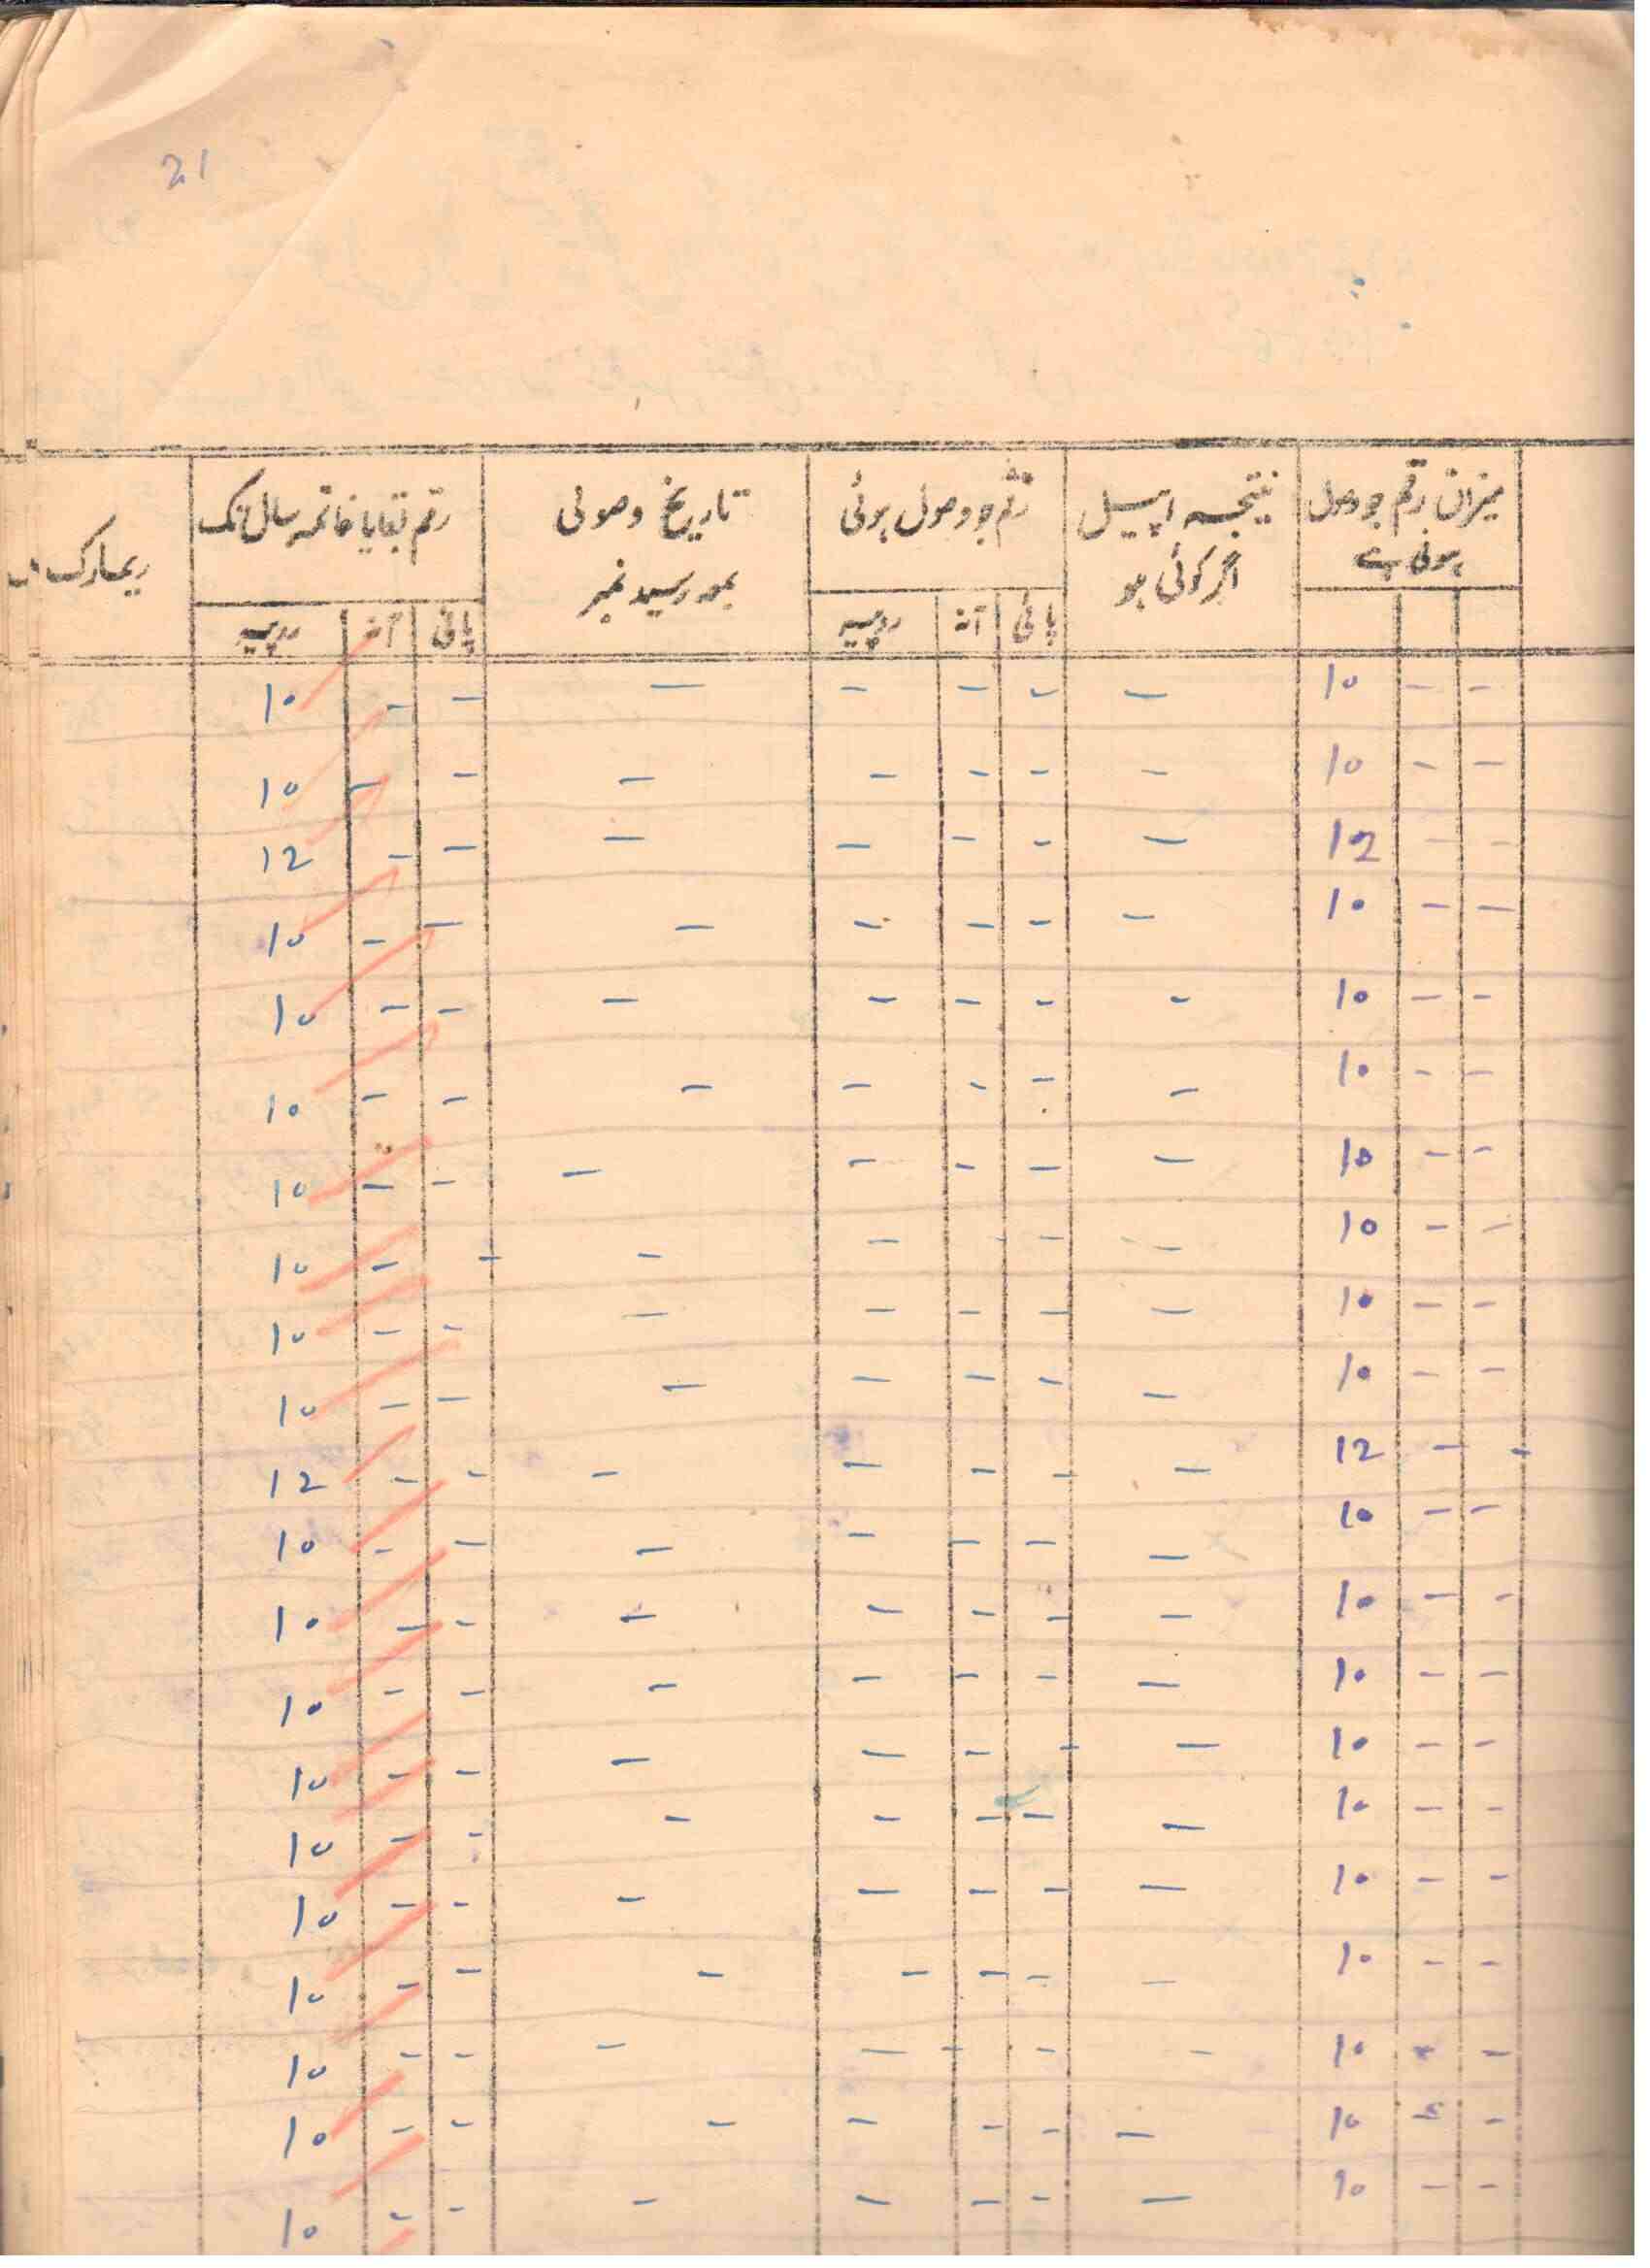 21
میزان رقم جو وصل | نتیجہ اپیل | رقم جو وصول ہوئی | تاریخ وصولی | رقم بقایا خاتمہ سال تک | ریمارکس
ہونی ہے | اگر کوئی ہو | بمعہ رسید نمبر
پائی | آنہ | روپیہ | پائی | آنہ | روپیہ
10 - - | - | - - - | - | 10 - -
10 - - | - | - - - | - | 10 - -
12 - - | - | - - - | - | 12 - -
10 - - | - | - - - | - | 10 - -
10 - - | - | - - - | - | 10 - -
10 - - | - | - - - | - | 10 - -
10 - - | - | - - - | - | 10 - -
10 - - | - | - - - | - | 10 - -
10 - - | - | - - - | - | 10 - -
10 - - | - | - - - | - | 10 - -
12 - - | - | - - - | - | 12 - -
10 - - | - | - - - | - | 10 - -
10 - - | - | - - - | - | 10 - -
10 - - | - | - - - | - | 10 - -
10 - - | - | - - - | - | 10 - -
10 - - | - | - - - | - | 10 - -
10 - - | - | - - - | - | 10 - -
10 - - | - | - - - | - | 10 - -
10 - - | - | - - - | - | 10 - -
10 - - | - | - - - | - | 10 - -
10 - - | - | - - - | - | 10 - -